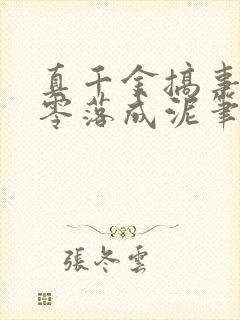 真千金搞事
零落成泥筆
張冬雲